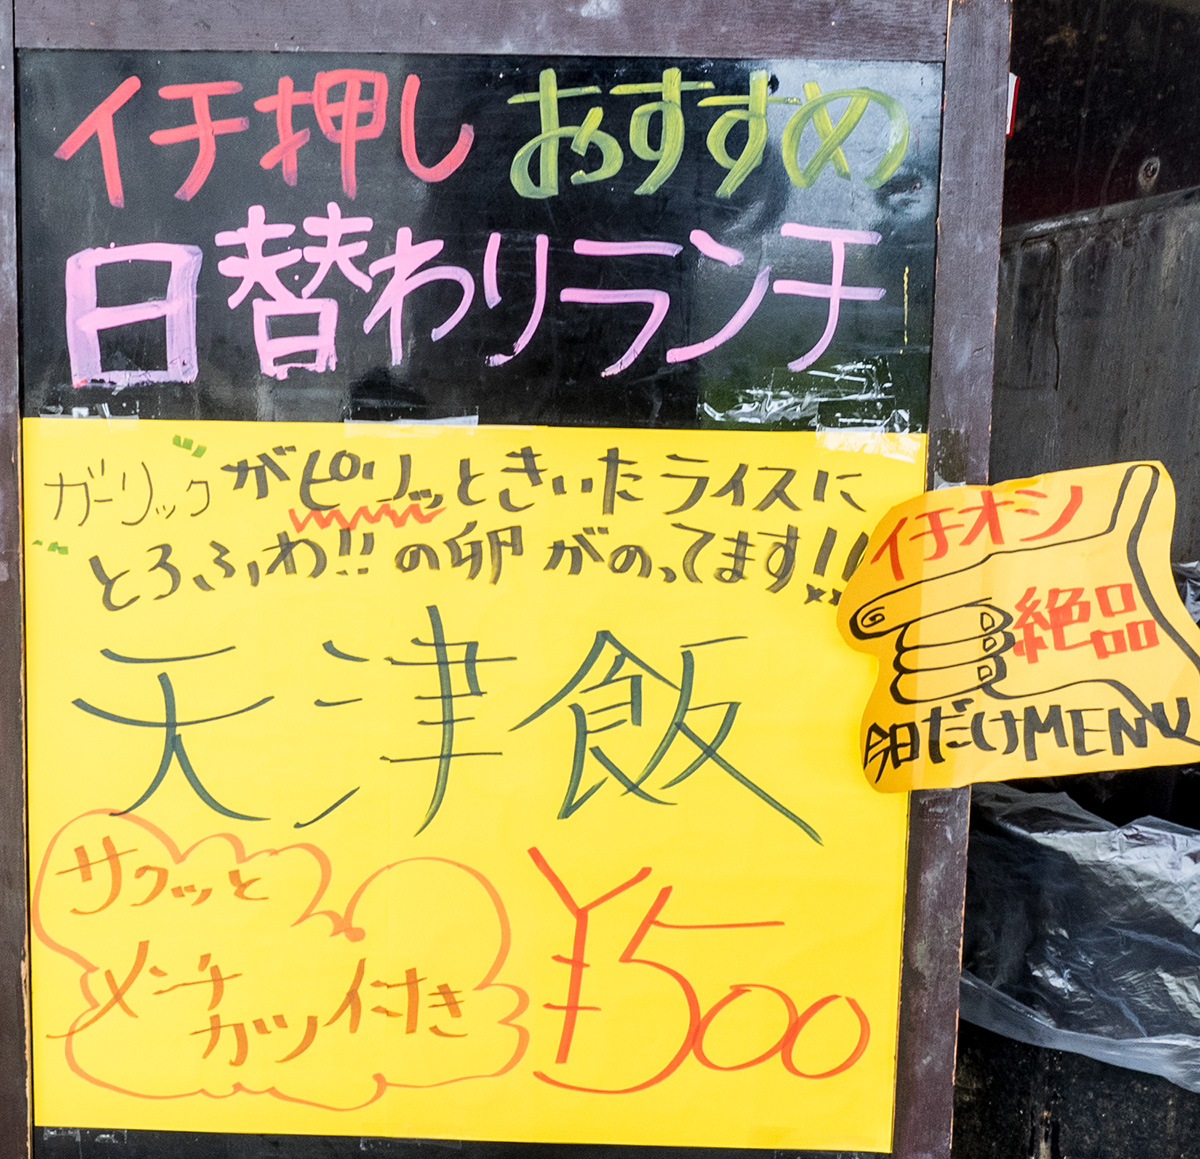 イチ押し おすすめ
日替わりランチ
ガーリックがピリッときいたライスに
とろふわ!!の卵がのってます!!
天津飯
サクッと
メンチ
カツ付き
¥500
イチオシ
絶品
今日だけMENU